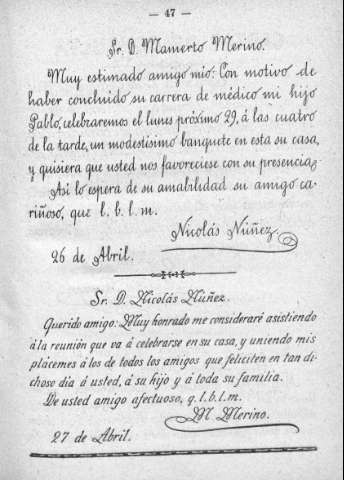 — 47 —
Sr. D. Mamerto Merino.
Muy estimado amigo mio: Con motivo de
haber concluido su carrera de médico mi hijo
Pablo, celebraremos el lunes próximo 29, á las cuatro
de la tarde, un modestísimo banquete en esta su casa,
y quisiera que usted nos favoreciese con su presencia.
Así lo espera de su amabilidad su amigo ca-
riñoso, que l. b. l. m.
Nicolás Núñez.
26 de Abril.
Sr. D. Nicolás Núñez.
Querido amigo: Muy honrado me consideraré asistiendo
á la reunión que va á celebrarse en su casa, y uniendo mis
plácemes á los de todos los amigos que feliciten en tan di-
choso día á usted, á su hijo y á toda su familia.
De usted amigo afectuoso, q. l. b. l. m.
M. Merino.
27 de Abril.